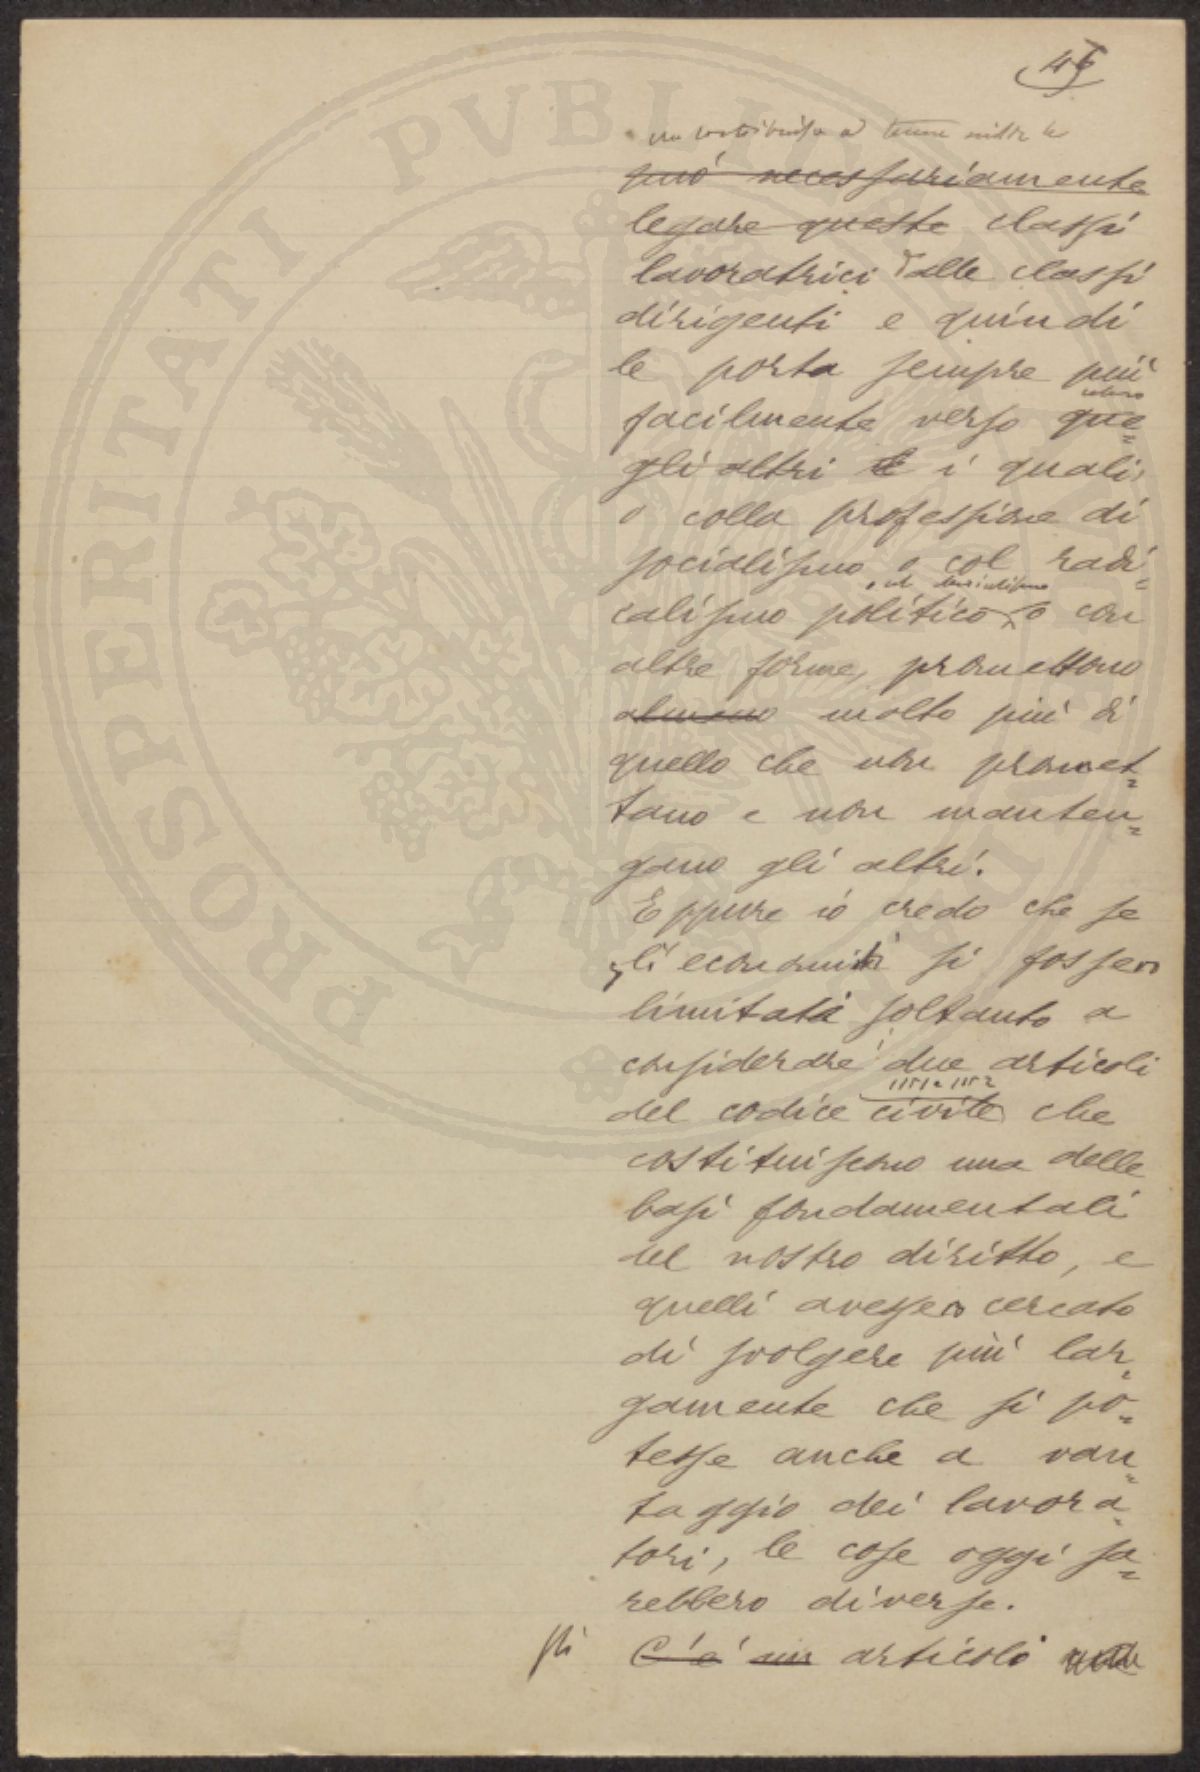 46
può necessariamente
legare queste classi
lavoratrici alle classi
dirigenti e quindi
le porta sempre più
coloro
facilmente verso que=
gli altri i quali,
o colla professione di
socialismo o col radi=
o col
calismo politico, o con
altre forme, promettono
almeno molto più di
quello che non promet=
tano e non manten=
gano gli altri.
Eppure io credo che se
gli economisti si fossero
limitati soltanto a
considerare due articoli
1151 e 1152
del codice civile che
costituiscono una delle
basi fondamentali
del nostro diritto, e
quelli avessero cercato
di svolgere più lar=
gamente che si po=
tesse anche a van=
taggio dei lavora=
tori, le cose oggi sa=
rebbero diverse.
Gli C'è un articoli
PROSPERITATI PVBLICAE